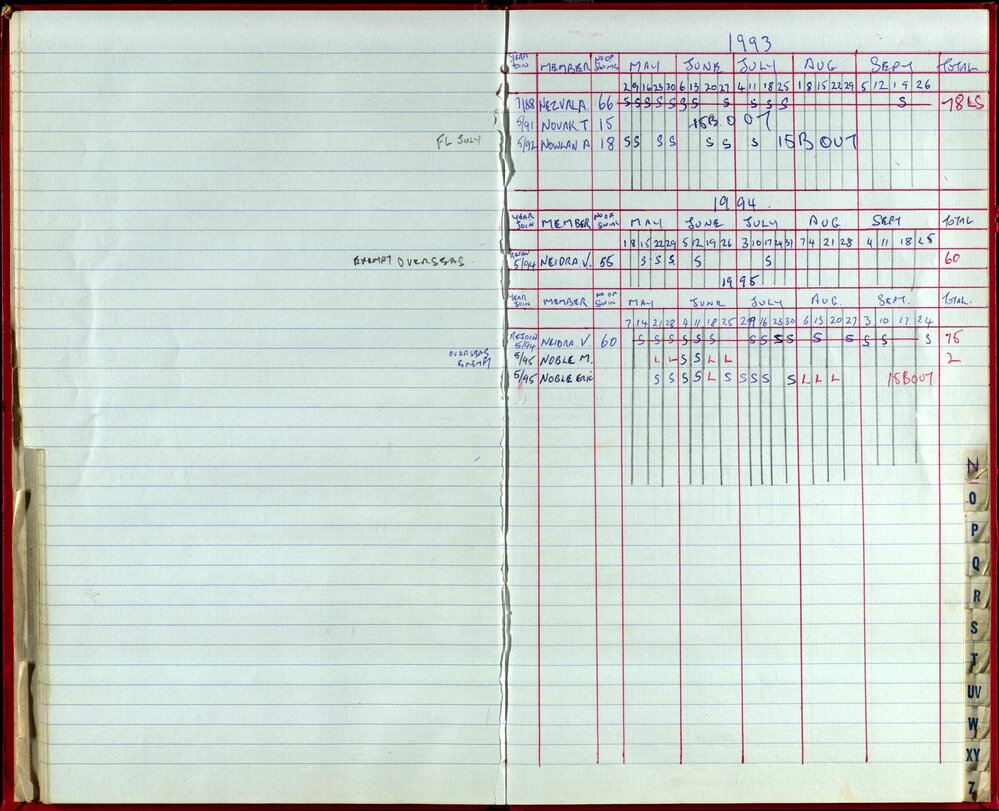 1993
YEAR JOIN MEMBER NO OF SWIMS MAY JUNE JULY AUG SEPT TOTAL
2 9 16 23 30 6 13 20 27 4 11 18 25 1 8 15 22 29 5 12 19 26
7/88 NEZVAL A. 66 S S S S S S S S S S S S 78 LS
5/91 NOVAK T 15 15B OUT
FL JULY 5/92 NOWLAN A 18 S S S S S S S 15B OUT
1994
YEAR JOIN MEMBER NO OF SWIMS MAY JUNE JULY AUG SEPT TOTAL
1 8 15 22 29 5 12 19 26 3 10 17 24 31 7 14 21 28 4 11 18 25
EXEMPT OVERSEAS REJOIN 5/94 NEIDRA. V. 55 S S S S S 60
1995
YEAR JOIN MEMBER NO OF SWIM MAY JUNE JULY AUG. SEPT. TOTAL.
7 14 21 28 4 11 18 25 2 9 16 23 30 6 13 20 27 3 10 17 24
REJOIN 5/94 NEIDRA. V. 60 S S S S S S S S S S S S S S S S 75
OVERSEAS EXEMPT 5/95 NOBLE M. L L S S L L 2
5/95 NOBLE ERIC S S S S L S S S S S L L L 15BOUT
N
O
P
Q
R
S
T
UV
W
XY
Z